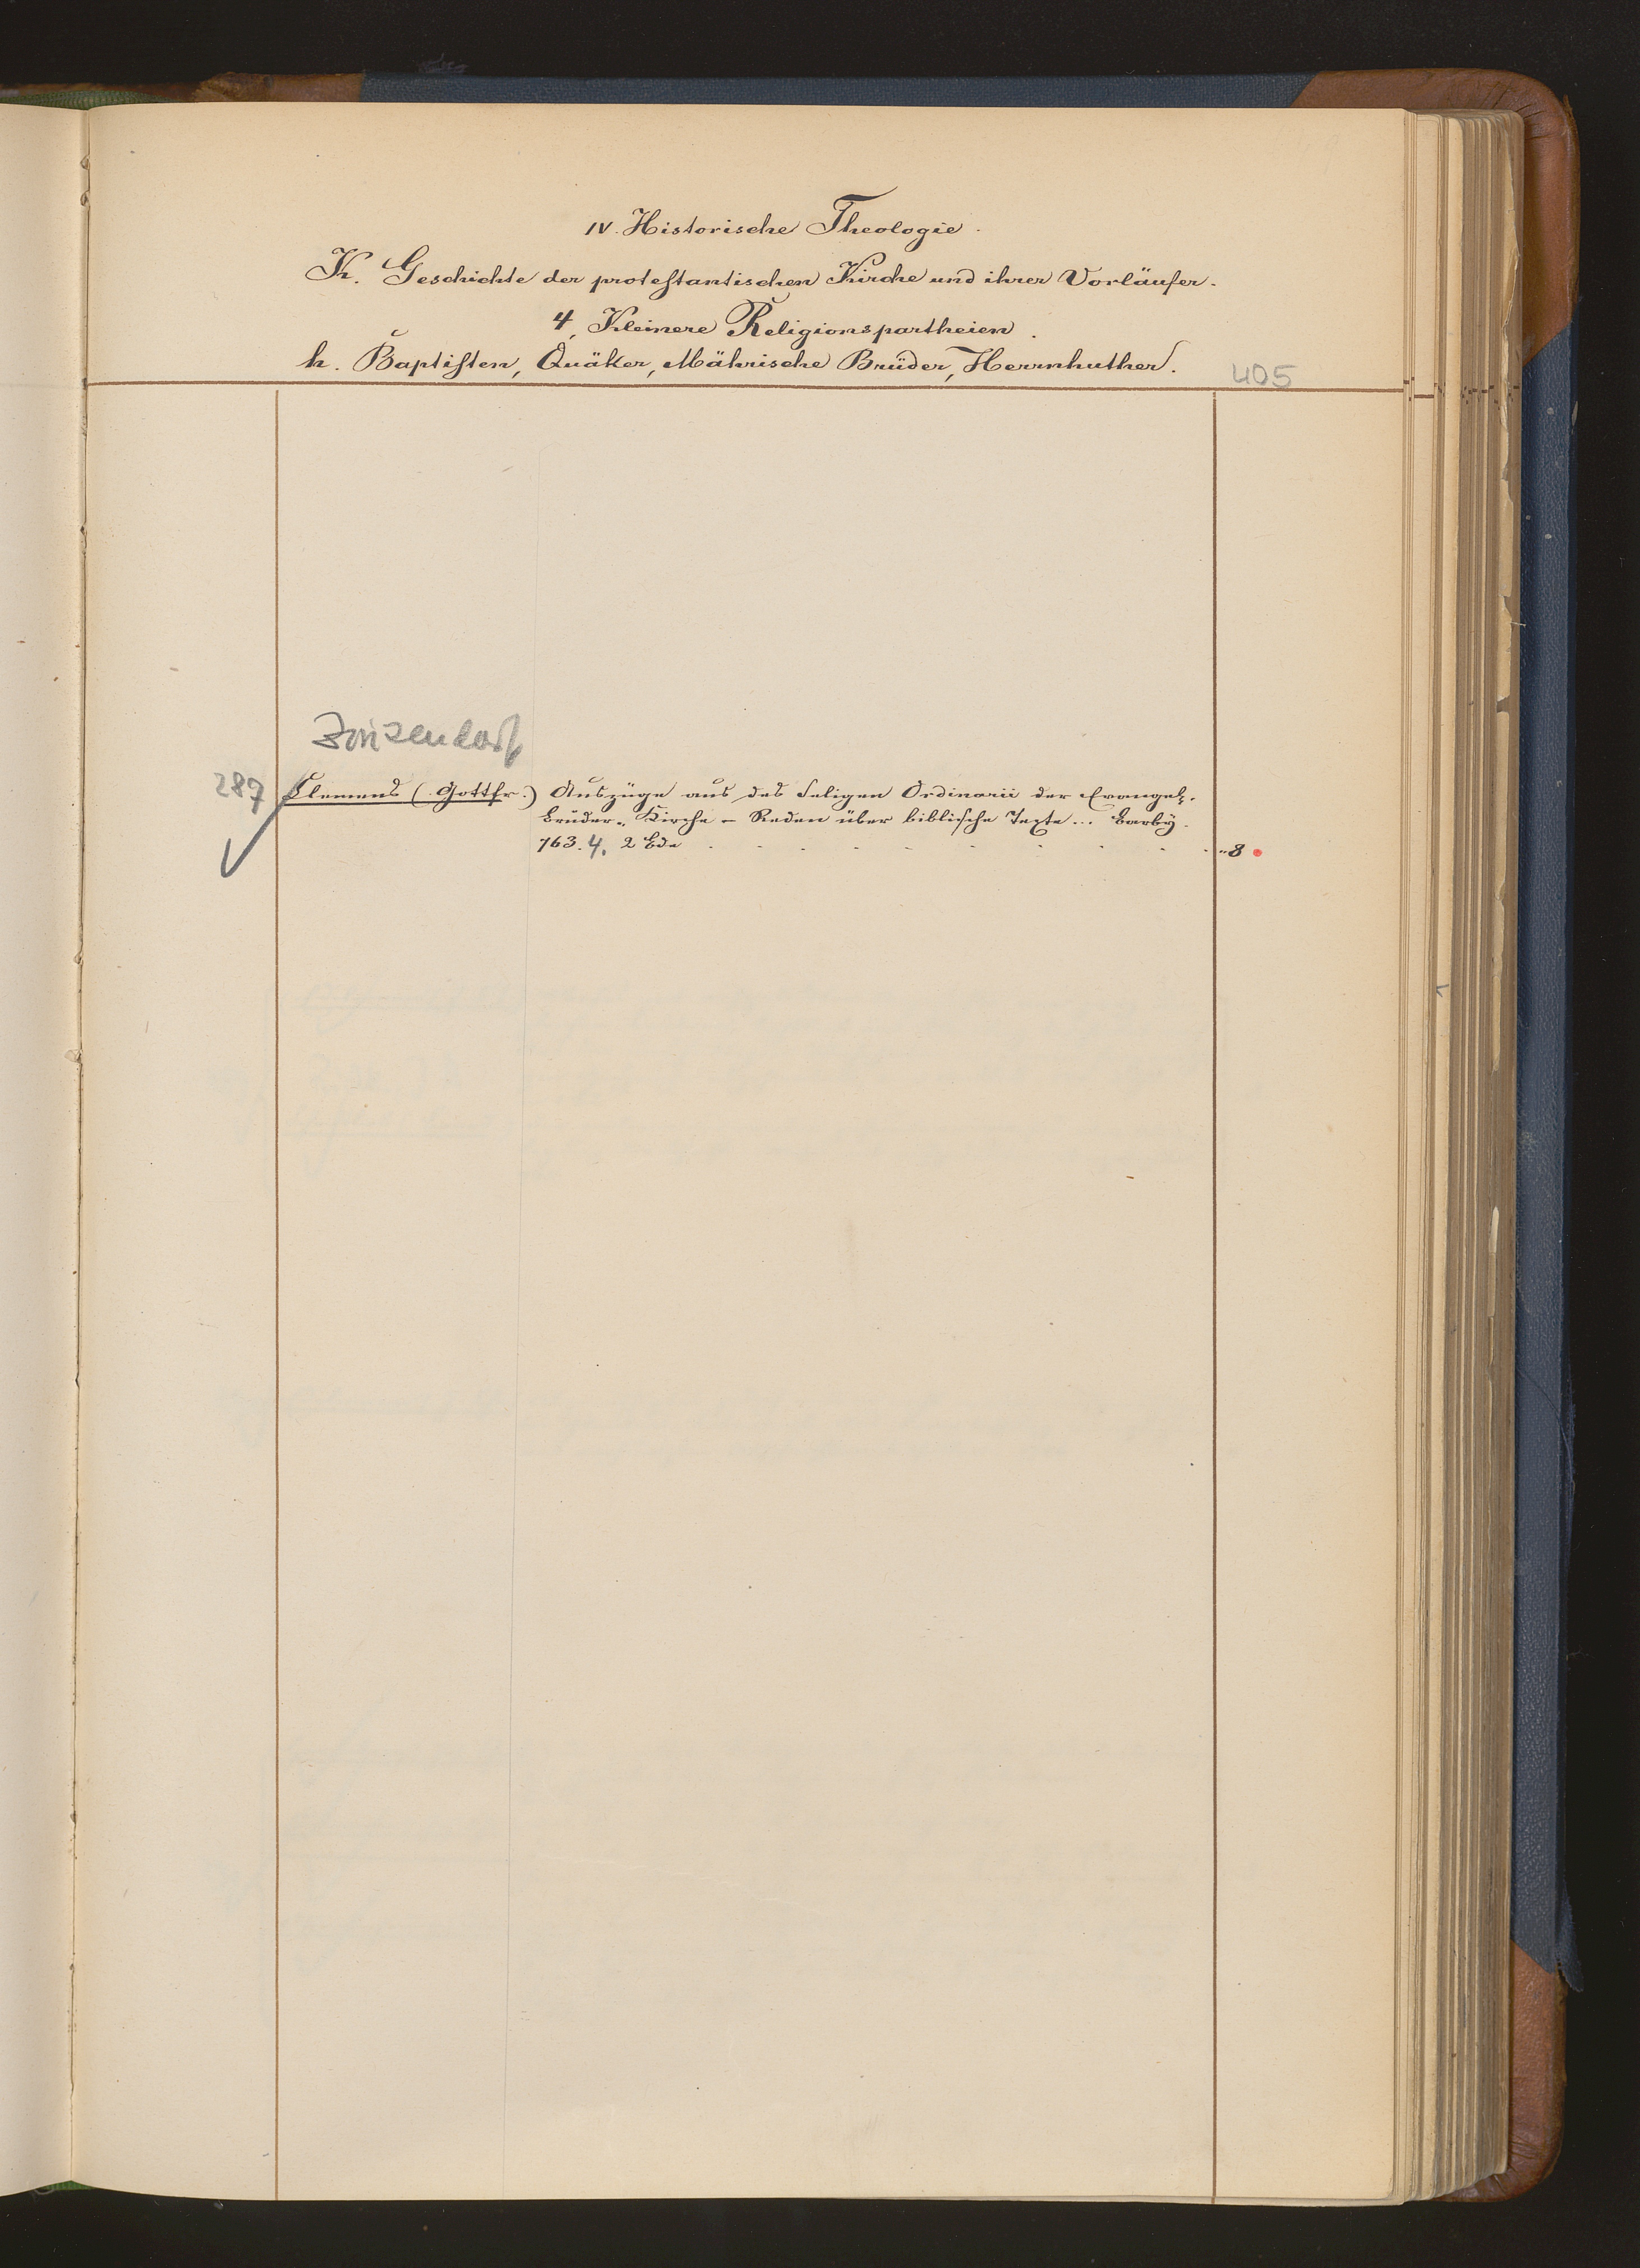 IV. Historische Theologie.
K. Geschichte der protestantischen Kirche und ihrer Vorläufer.
4, Kleinere Religionspartheien.
h. Baptisten, Quäker, Mährische Brüder, Herrnhuther.
405
Zinzendorf
287 Clemens (Gottfr.) Auszüge aus des seligen Ordinarii der Evangel.
Brüder-Kirche – Reden über biblische Texte... Barby.
763. 4. 2 Bde . . . . . . . . . . „8